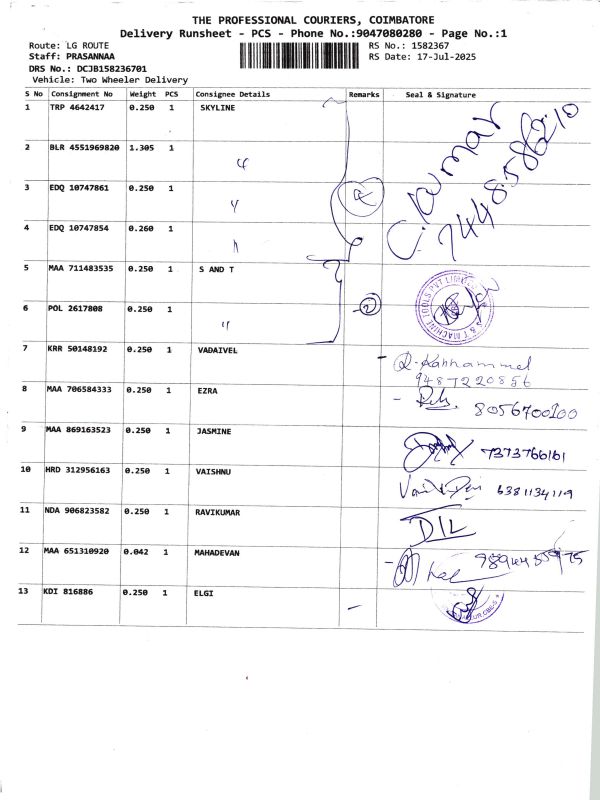 THE PROFESSIONAL COURIERS, COIMBATORE
Delivery Runsheet - PCS - Phone No.:9047080280 - Page No.:1
Route: LG ROUTE
Staff: PRASANNAA
DRS No.: DCJB158236701
Vehicle: Two Wheeler Delivery
RS No.: 1582367
RS Date: 17-Jul-2025
S No Consignment No Weight PCS Consignee Details Remarks Seal & Signature
1 TRP 4642417 0.250 1 SKYLINE
2 BLR 4551969820 1.305 1 "
3 EDQ 10747861 0.250 1 "
4 EDQ 10747854 0.260 1 "
C. Kumar
74485586210
5 MAA 711483535 0.250 1 S AND T
6 POL 2617808 0.250 1 " 2
7 KRR 50148192 0.250 1 VADAIVEL
9487220856
8 MAA 706584333 0.250 1 EZRA 8056700100
9 MAA 869163523 0.250 1 JASMINE 7373766161
10 HRD 312956163 0.250 1 VAISHNU 6381134119
11 NDA 906823582 0.250 1 RAVIKUMAR
12 MAA 651310920 0.042 1 MAHADEVAN
13 KDI 816886 0.250 1 ELGI